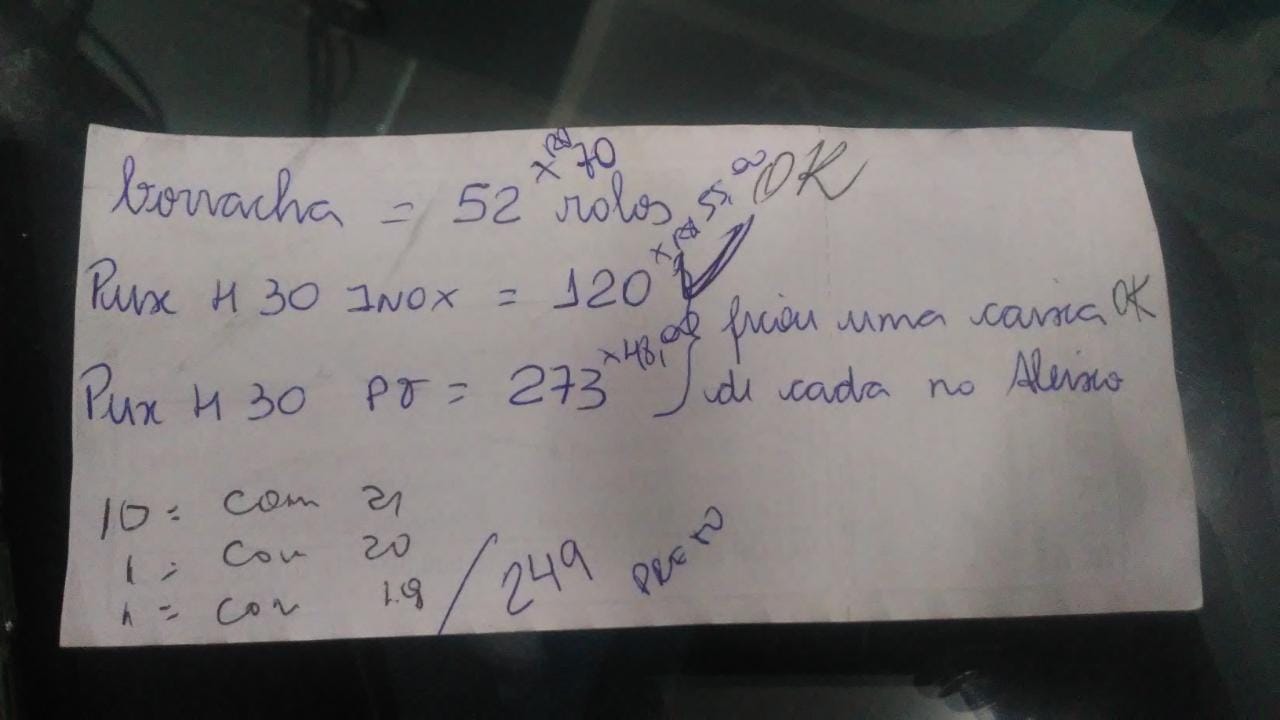 borracha = 52 rolos x R$ 70 OK
Pux H 30 INOX = 120 x R$ 55,00
Pux H 30 PT = 273 x 48,00 } ficou uma caixa OK
de cada no Aleixo
10 = com 21
1 = com 20
1 = com 19 / 249 PRETO